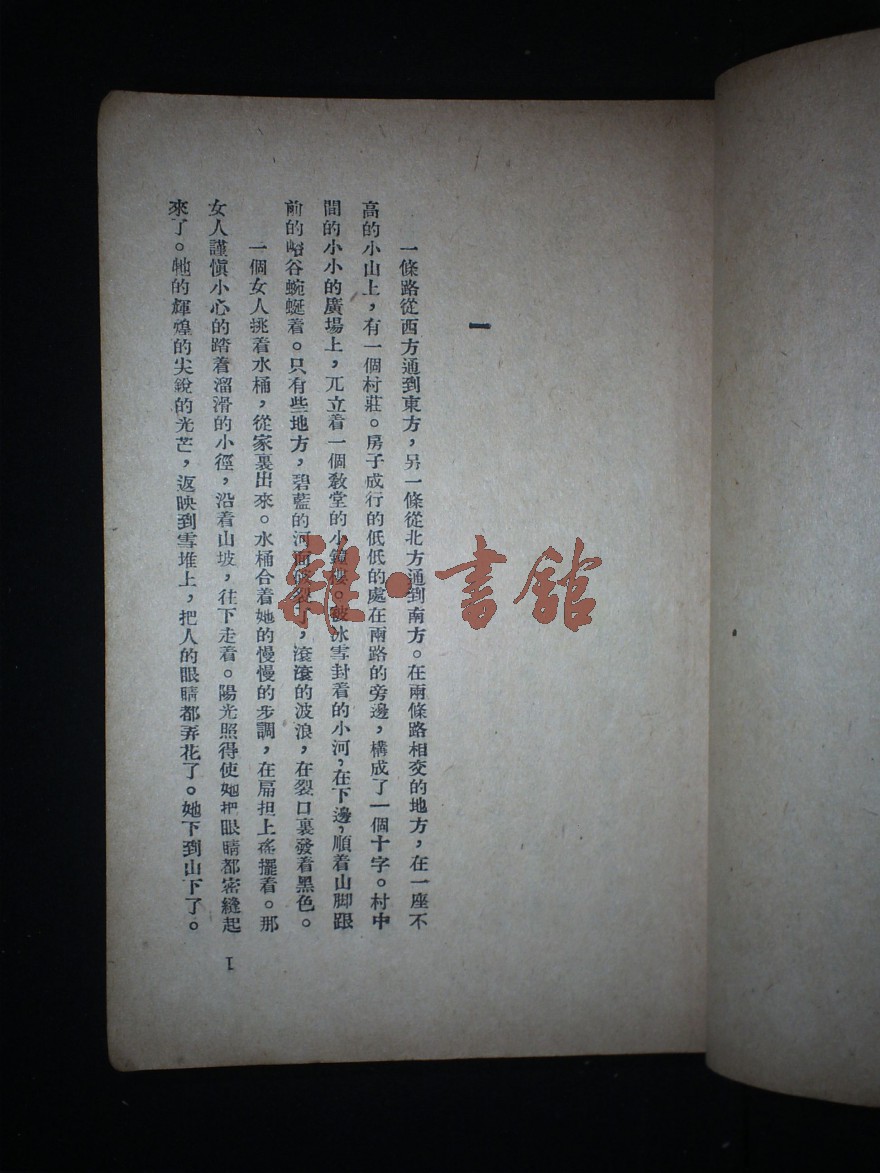 一
一條路從西方通到東方，另一條從北方通到南方。在兩條路相交的地方，在一座不
高的小山上，有一個村莊。房子成行的低低的處在兩路的旁邊，構成了一個十字。村中
間的小小的廣場上，兀立着一個敎堂的小鐘樓。被冰雪封着的小河，在下邊，順着山脚跟
前的谿谷蜿蜒着。只有些地方，碧藍的河面破裂了，滾滾的波浪，在裂口裏發着黑色。
一個女人挑着水桶，從家裏出來。水桶合着她的慢慢的步調，在扁担上搖擺着。那
女人謹愼小心的踏着溜滑的小徑，沿着山坡，往下走着。陽光照得使她把眼睛都密縫起
來了。牠的輝煌的尖銳的光芒，返映到雪堆上，把人的眼睛都弄花了。她下到山下了。
1
雜·書館